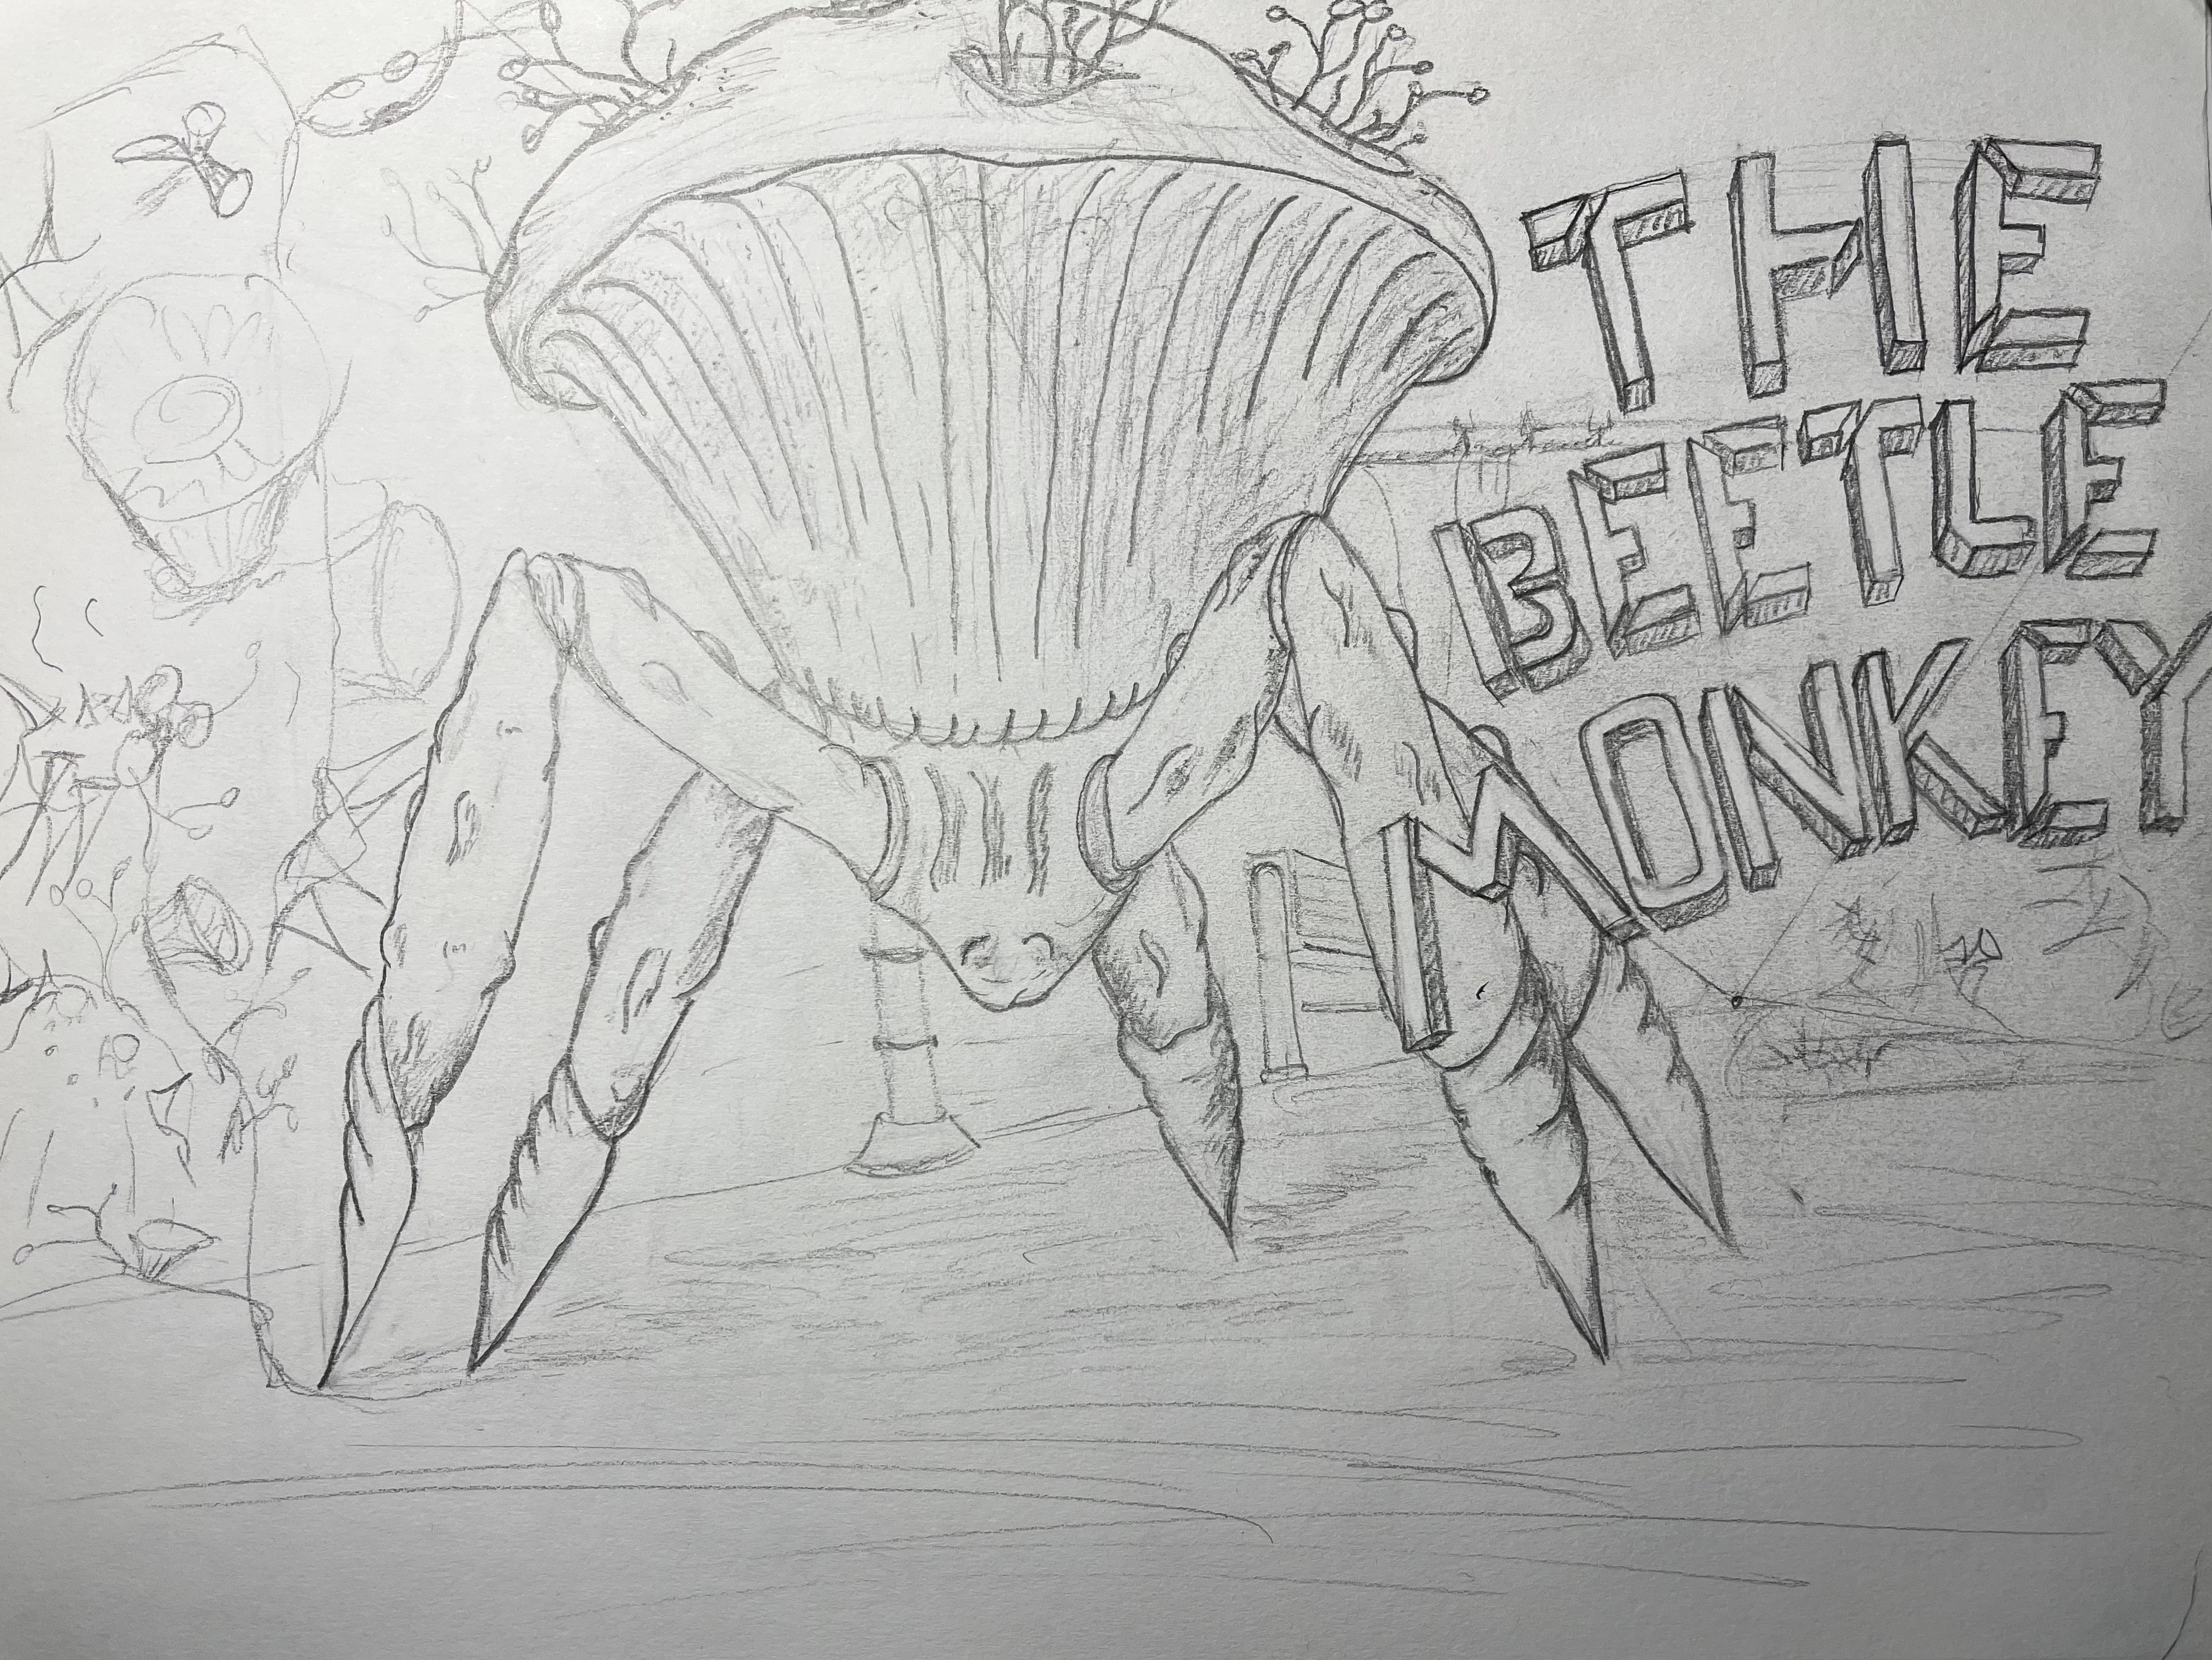 THE
BEETLE
MONKEY